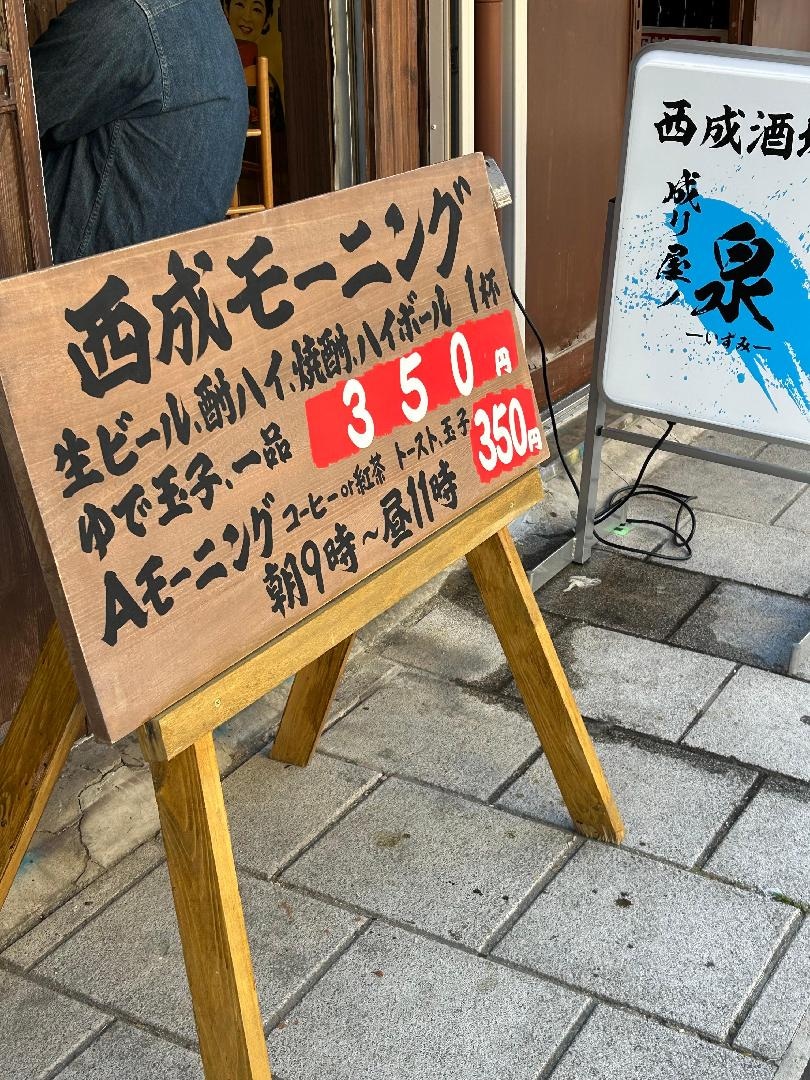 西成モーニング
生ビール、酎ハイ、焼酎、ハイボール 1杯
ゆで玉子、一品 350円
Aモーニング コーヒーor紅茶 トースト、玉子 350円
朝9時~昼11時
西成酒場
成り屋ノ
泉
ーいずみー